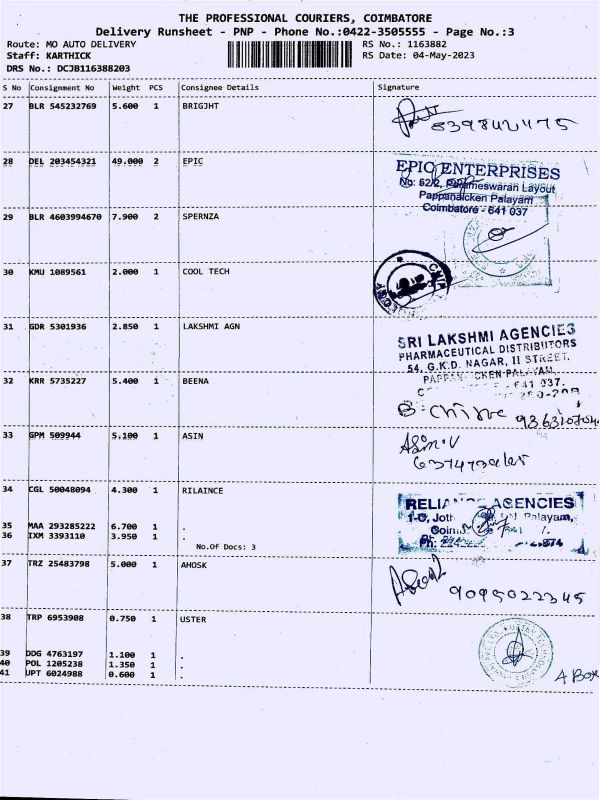 THE PROFESSIONAL COURIERS, COIMBATORE
Delivery Runsheet - PNP - Phone No.:0422-3505555 - Page No.:3
Route: MO AUTO DELIVERY RS No.: 1163882
Staff: KARTHICK RS Date: 04-May-2023
DRS No.: DCJB116388203
S No Consignment No Weight PCS Consignee Details Signature
27 BLR 545232769 5.600 1 BRIGJHT
8398424475
28 DEL 203454321 49.000 2 EPIC
EPIC ENTERPRISES
No: 62/2, Parameswaran Layout
Pappanaicken Palayam
Coimbatore - 641 037
29 BLR 4603994670 7.900 2 SPERNZA
30 KMU 1089561 2.000 1 COOL TECH
31 GDR 5301936 2.850 1 LAKSHMI AGN
SRI LAKSHMI AGENCIES
PHARMACEUTICAL DISTRIBUTORS
54, G.K.D. NAGAR, II STREET,
641 037.
32 KRR 5735227 5.400 1 BEENA
33 GPM 509944 5.100 1 ASIN
Asin.V
34 CGL 50048094 4.300 1 RILAINCE
RELIANCE AGENCIES
Palayam,
35 MAA 293285222 6.700 1 .
36 IXM 3393110 3.950 1 .
No.Of Docs: 3
37 TRZ 25483798 5.000 1 AHOSK
9095022345
38 TRP 6953908 0.750 1 USTER
39 DDG 4763197 1.100 1 .
40 POL 1205238 1.350 1 .
41 UPT 6024988 0.600 1 .
4 Box